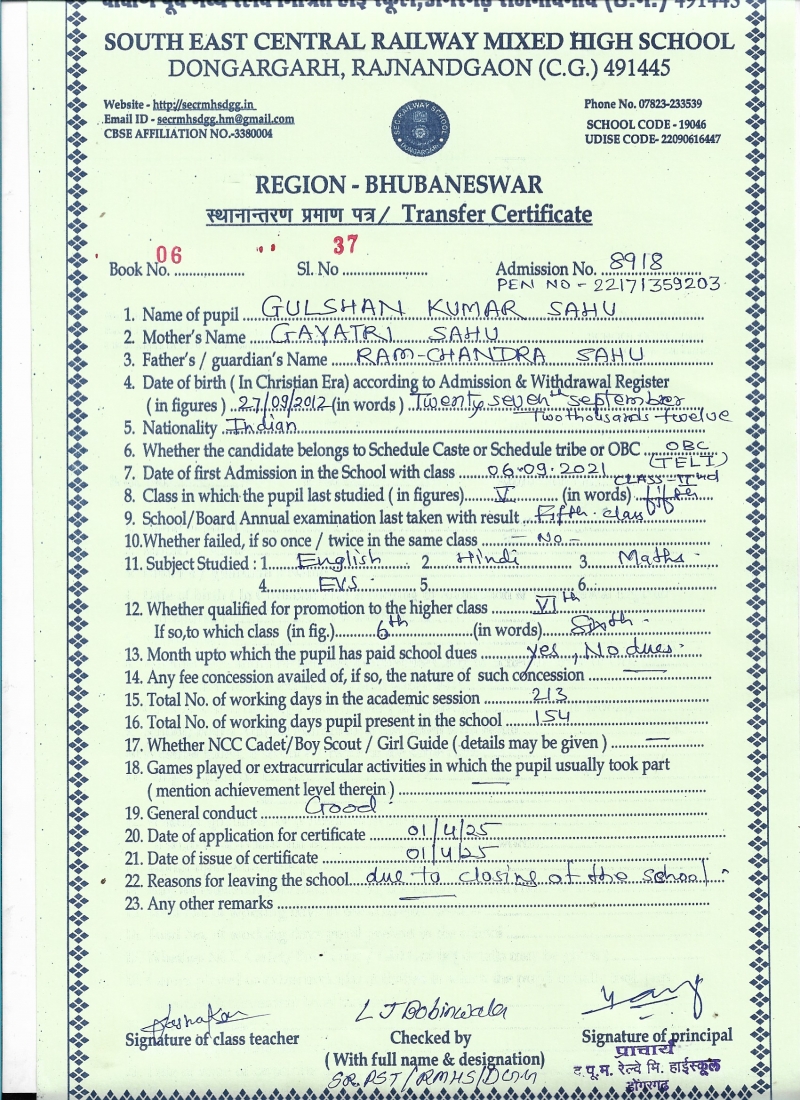 SOUTH EAST CENTRAL RAILWAY MIXED HIGH SCHOOL
DONGARGARH, RAJNANDGAON (C.G.) 491445
Website - http://secrmhsdgg.in
Email ID - secrmhsdgg.hm@gmail.com
CBSE AFFILIATION NO.-3380004
SEC RAILWAY SCHOOL
DONGARGARH
Phone No. 07823-233539
SCHOOL CODE - 19046
UDISE CODE- 22090616447
REGION - BHUBANESWAR
स्थानान्तरण प्रमाण पत्र / Transfer Certificate
Book No. 06 Sl. No 37 Admission No. 8918
PEN NO - 22171359203
1. Name of pupil GULSHAN KUMAR SAHU
2. Mother's Name GAYATRI SAHU
3. Father's / guardian's Name RAM-CHANDRA SAHU
4. Date of birth ( In Christian Era) according to Admission & Withdrawal Register
( in figures ) 27/09/2012 (in words ) Twenty seven september
Two thousands-twelve
5. Nationality Indian
6. Whether the candidate belongs to Schedule Caste or Schedule tribe or OBC OBC
(TELI)
7. Date of first Admission in the School with class 06.09.2021
CLASS-II nd
8. Class in which the pupil last studied ( in figures) V (in words) fifth
9. School/Board Annual examination last taken with result Fifth class
10.Whether failed, if so once / twice in the same class - No -
11. Subject Studied : 1. English 2. Hindi 3. Maths
4. EVS 5. 6.
12. Whether qualified for promotion to the higher class VIth
If so,to which class (in fig.) 6th (in words) Sixth
13. Month upto which the pupil has paid school dues yes, No dues
14. Any fee concession availed of, if so, the nature of such concession —
15. Total No. of working days in the academic session 213
16. Total No. of working days pupil present in the school 154
17. Whether NCC Cadet/Boy Scout / Girl Guide ( details may be given ) —
18. Games played or extracurricular activities in which the pupil usually took part
( mention achievement level therein ) —
19. General conduct Good
20. Date of application for certificate 01/4/25
21. Date of issue of certificate 01/4/25
22. Reasons for leaving the school due to closing of the school
23. Any other remarks —
Signature of class teacher
Checked by
( With full name & designation)
Signature of principal
प्राचार्य
द.पू.म. रेल्वे मि. हाईस्कूल
डोंगरगढ़